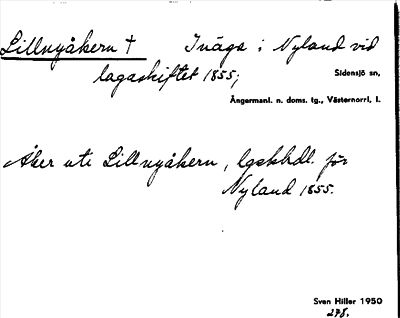 Lillnyåkern † Inägo i Nyland vid
lagaskiftet 1855;
Sidensjö sn,
Ångermanl. n. doms. tg., Västernorrl, l.
Åker ute Lillnyåkern, lgskhdl. för
Nyland 1855.
Sven Hiller 1950
278.